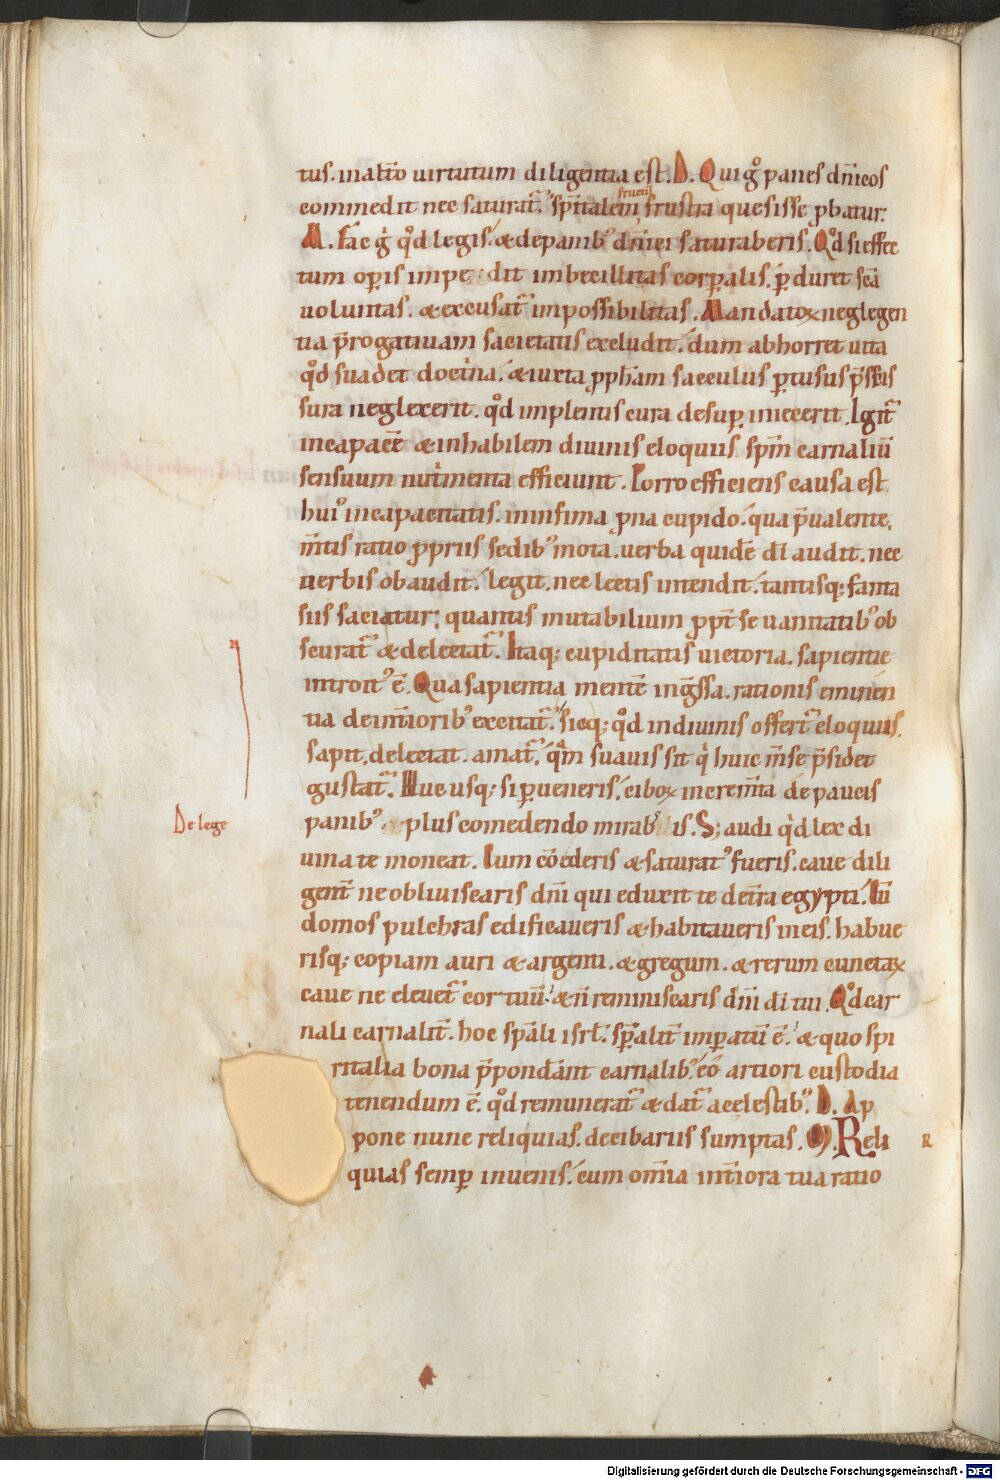 tus. in alt̄o uirtutum diligentia est. D. Qui g̊ panes dn̄icos
fructū
commedit nec saturat᷑. spiritalem frustra quesisse ꝓbatur.
M. Fac g̊ qd̊ legis. & de panib᷒ dn̄ici saturaberis. Qd̊ si effec
tum oꝑis impedit imbecillitas corꝑalis. ꝑduret sc̄a
uoluntas. & excusat᷑ impossibilitas. Mandatoꝝ neglegen
tia p̄rogatiuam sacietatis excludit. dum abhorret uita
qd̊ suadet doctrina. & iuxta ꝓph̄am sacculus ꝑtusus p̄ssis
sura neglexerit. qd̊ implentis cura desuꝑ iniecerit. Igit᷑
incapacē & inhabilem diuinis eloquiis sp̄m carnaliū
sensuum nutrimenta efficiunt. Porro efficiens causa est
hui᷒ incapacitatis. in infima ꝓna cupido. qua p̄ualente,
m̄tis ratio ꝓpriis sedib᷒ mota. uerba quidē dī audit. nec
uerbis obaudit. legit. nec lectis intendit. tantisq; fanta
siis saciatur; quantis mutabilium ꝓpt̄ se uanitatib᷒ ob
scurat᷑ & delectat᷑. Itaq; cupiditatis uictoria. sapientie
introit᷒ ē. Qua sapientia mentē ingressa. rationis eminen
tia de int̄iorib᷒ excitat᷑. sicq; qd̊ in diuinis offert᷑ eloquiis.
sapit. delectat. amat᷑. qm̄ suauis sit qi huic m̄se p̄sidet
gustat᷑. Huc usq; si ꝑueneris. ciboꝝ increm̄ta de paucis
De lege
panib᷒ & plus comedendo mirab is. S; audi qd lex di
uina te moneat. Cum cōederis & saturat᷒ fueris. caue dili
gent̄ ne obliuiscaris dn̄i qui eduxit te de t̄ra egypti. Cū
domos pulchras edificaueris & habitaueris in eis. habue
risq; copiam auri & argenti. & gregum. & rerum cunctaꝝ
caue ne eleuet᷑ cor tuū. & n̄ reminiscaris dn̄i dī tui. Qd̊ car
nali carnalit̄. hoc sp̄ali isrl̄. sp̄alit̄ imꝑatū ē. & quo spi
ritalia bona p̄ponderant carnalib᷒. eo artiori custodia
tenendum ē. qd̊ remunerat᷑ & dat᷑ a celestib᷒. D. Ap
pone nunc reliquias. de cibariis sumptas. M. Reli
R
quias semꝑ inuenis. cum om̄ia int̄iora tua ratio
Digitalisierung gefördert durch die Deutsche Forschungsgemeinschaft - DFG